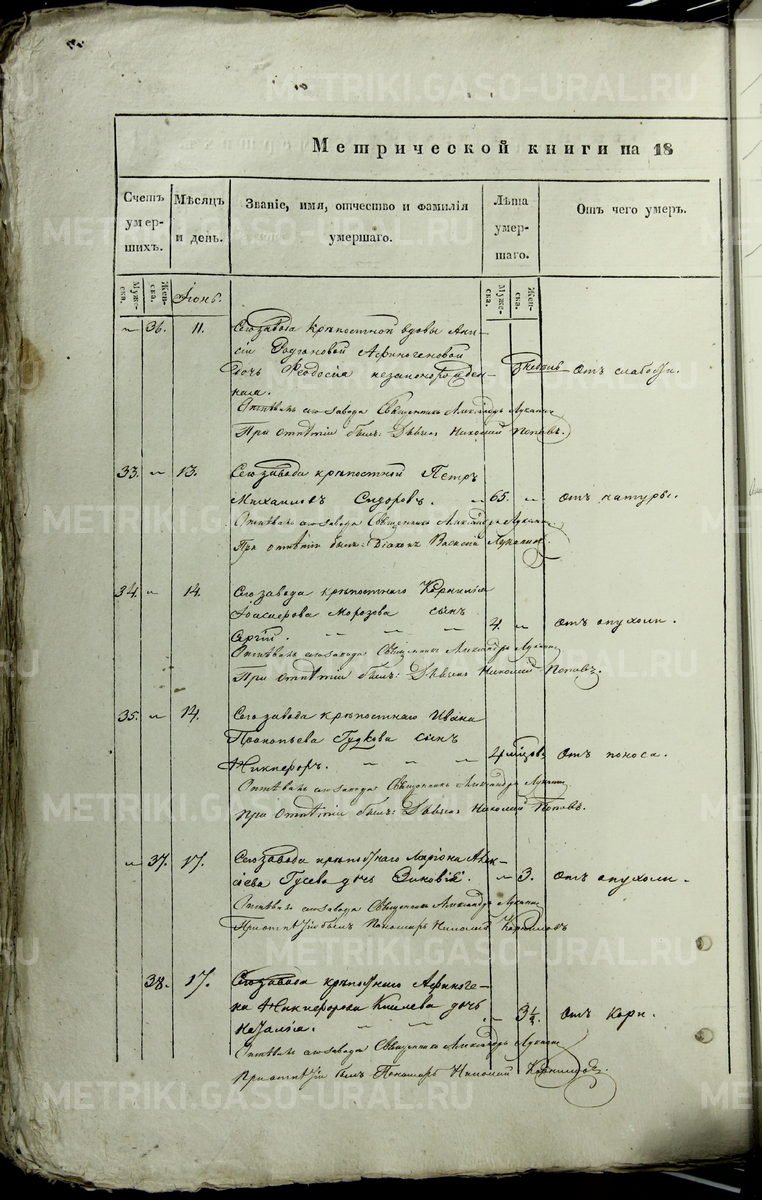 Метрической книги на 18
Счетъ умершихъ.
Мѣсяцъ и день.
Званіе, имя, отчество и фамилія умершаго.
Лѣта умершаго.
Отъ чего умеръ.
Мужеска. Женска. Іюнь. Мужеска. Женска.
" 36. 11. Сего завода крѣпостной вдовы Ани-
сіи
дочь Феодосія незаконорожден-
ная. Отъ слабости.
Отпѣвалъ сего завода Священникъ Александръ Луканинъ
При отпѣтіи былъ: Дьячекъ Николай Поповъ.
33. " 13. Сего завода крѣпостной Петръ
Михаиловъ Сидоровъ. " 65. " Отъ натуры.
Отпѣвалъ сего завода Священникъ Александръ Луканинъ
При отпѣтіи былъ: Діаконъ Василій Луканинъ.
34. " 14. Сего завода крѣпостнаго Корнилія
Морозова сынъ
Сергій. " " " 4. " Отъ опухоли.
Отпѣвалъ сего завода Священникъ Александръ Луканинъ
При отпѣтіи былъ: Дьячекъ Николай Поповъ.
35. " 14. Сего завода крѣпостнаго Ивана
Прокопьева Гудкова сынъ
Никифоръ. " " " 4 Отъ поноса.
Отпѣвалъ сего завода Священникъ Александръ Луканинъ
При отпѣтіи былъ: Дьячекъ Николай Поповъ.
" 37. 17. Сего завода крѣпостнаго Ларіона Алек-
сіева Гусева дочь Зиновія. " 3. Отъ опухоли.
Отпѣвалъ сего завода Священникъ Александръ Луканинъ
При отпѣтіи былъ Пономарь Николай Корниловъ
38. 17. Сего завода крѣпостнаго Афиноге-
на Никифорова Киселева дочь
Наталія. " " " 3½. Отъ кори.
Отпѣвалъ сего завода Священникъ Александръ Луканинъ
При отпѣтіи былъ Пономарь Николай Корниловъ.
METRIKI.GASO-URAL.RU